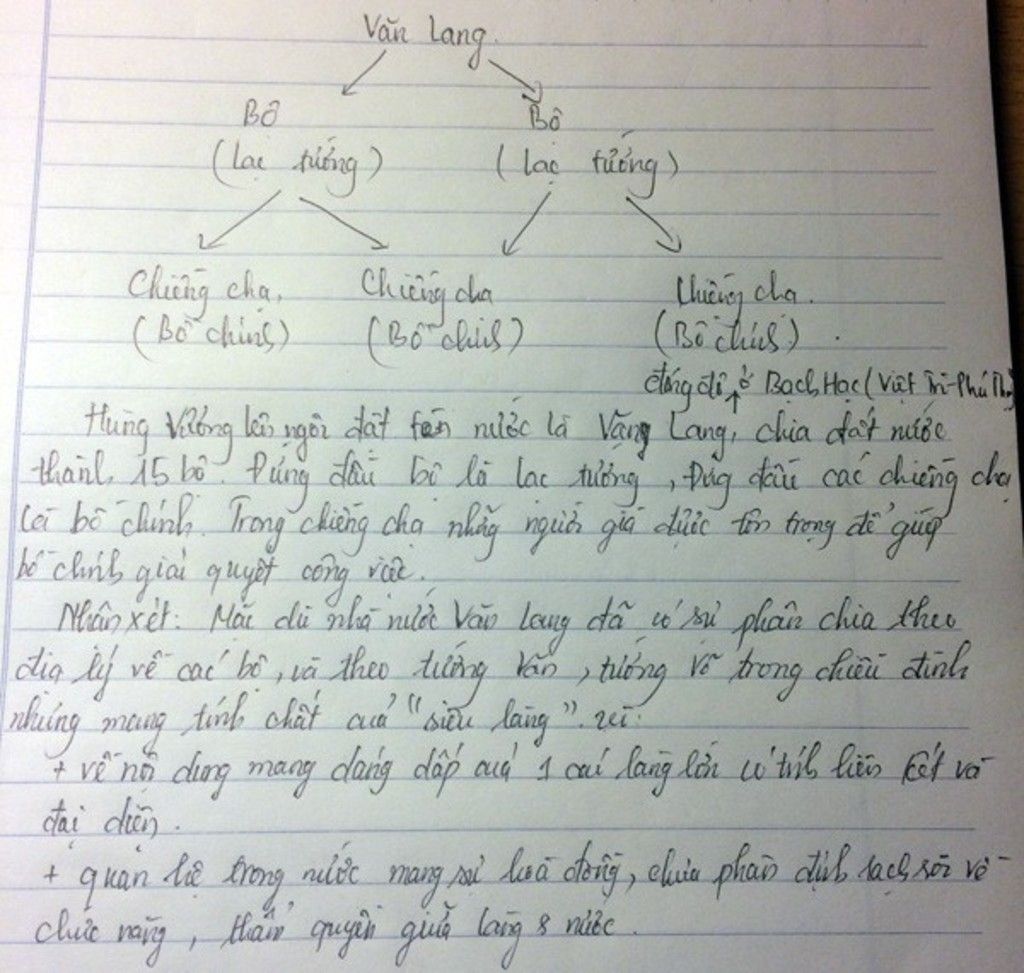 Văn Lang.
Bộ Bộ
(lạc tướng) (lạc tướng)
Chiềng chạ, Chiềng chạ Chiềng chạ.
(Bồ chính) (Bồ chính) (Bồ chính).
đóng đô ở Bạch Hạc (Việt Trì-Phú Thọ)
Hùng Vương lên ngôi đặt tên nước là Văng Lang, chia đất nước
thành 15 bộ. Đứng đầu bộ là lạc tướng, Đứg đầu các chiềng chạ
là bồ chính. Trong chiềng chạ nhữg người già được tôn trọng để giúp
bồ chính giải quyết công việc.
Nhận xét: Mặc dù nhà nước Văn Lang đã có sự phân chia theo
địa lý về các bộ, và theo tướng văn, tướng võ trong chiều đình
nhưng mang tính chất cuả "siêu làng". vì:
+ về nội dung mang dáng dấp cuả 1 cái làng lớn có tính liên kết và
đại diện.
+ quan hệ trong nước mang sự hoà đồng, chưa phân định rạch ròi về
chức năng, thẩm quyền giữa làng & nước.